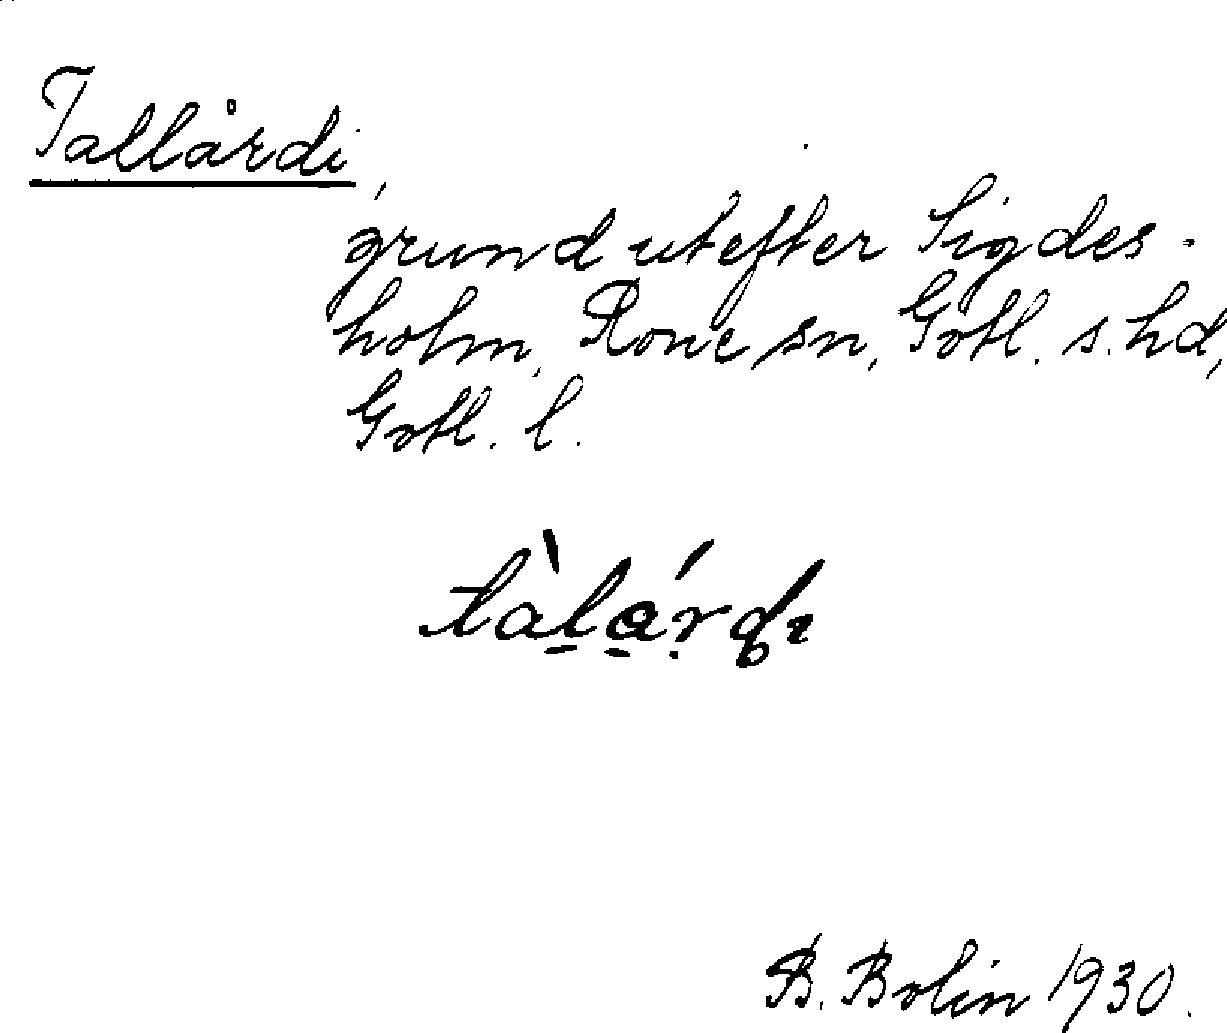 Tallårdi,
grund utefter Sigdes-
holm, Rone sn, Gotl. s. hd,
Gotl. l.
B. Bolin 1930.